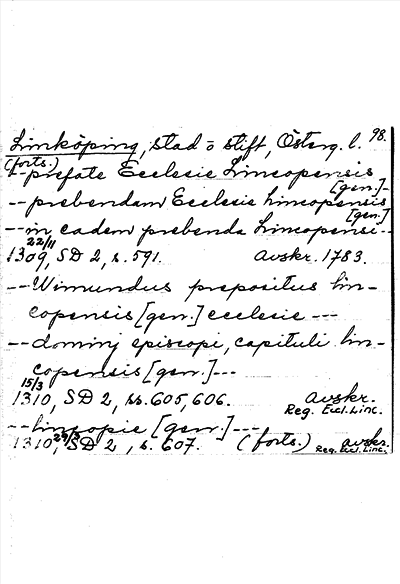 Linköping, stad o stift, Österg. l. 98.
(forts.)
-- prefate Ecclesie Lincopensis
[gen.] --
-- prebendam Ecclesie lincopensis
[gen.]
-- in eadem prebenda Lincopensi --
1309 22/11, SD 2, s. 591. Avskr. 1783.
-- Wimundus prepositus lin-
copensis [gen.] ecclesie ---
-- dominj episcopi, capituli lin-
copensis [gen.] ---
1310 15/3, SD 2, ss. 605, 606. Avskr.
Reg. Eccl. Linc.
-- lincopie [gen.] ---
1310 29/3, SD 2, s. 607. (forts.) avskr.
Reg. Eccl. Linc.